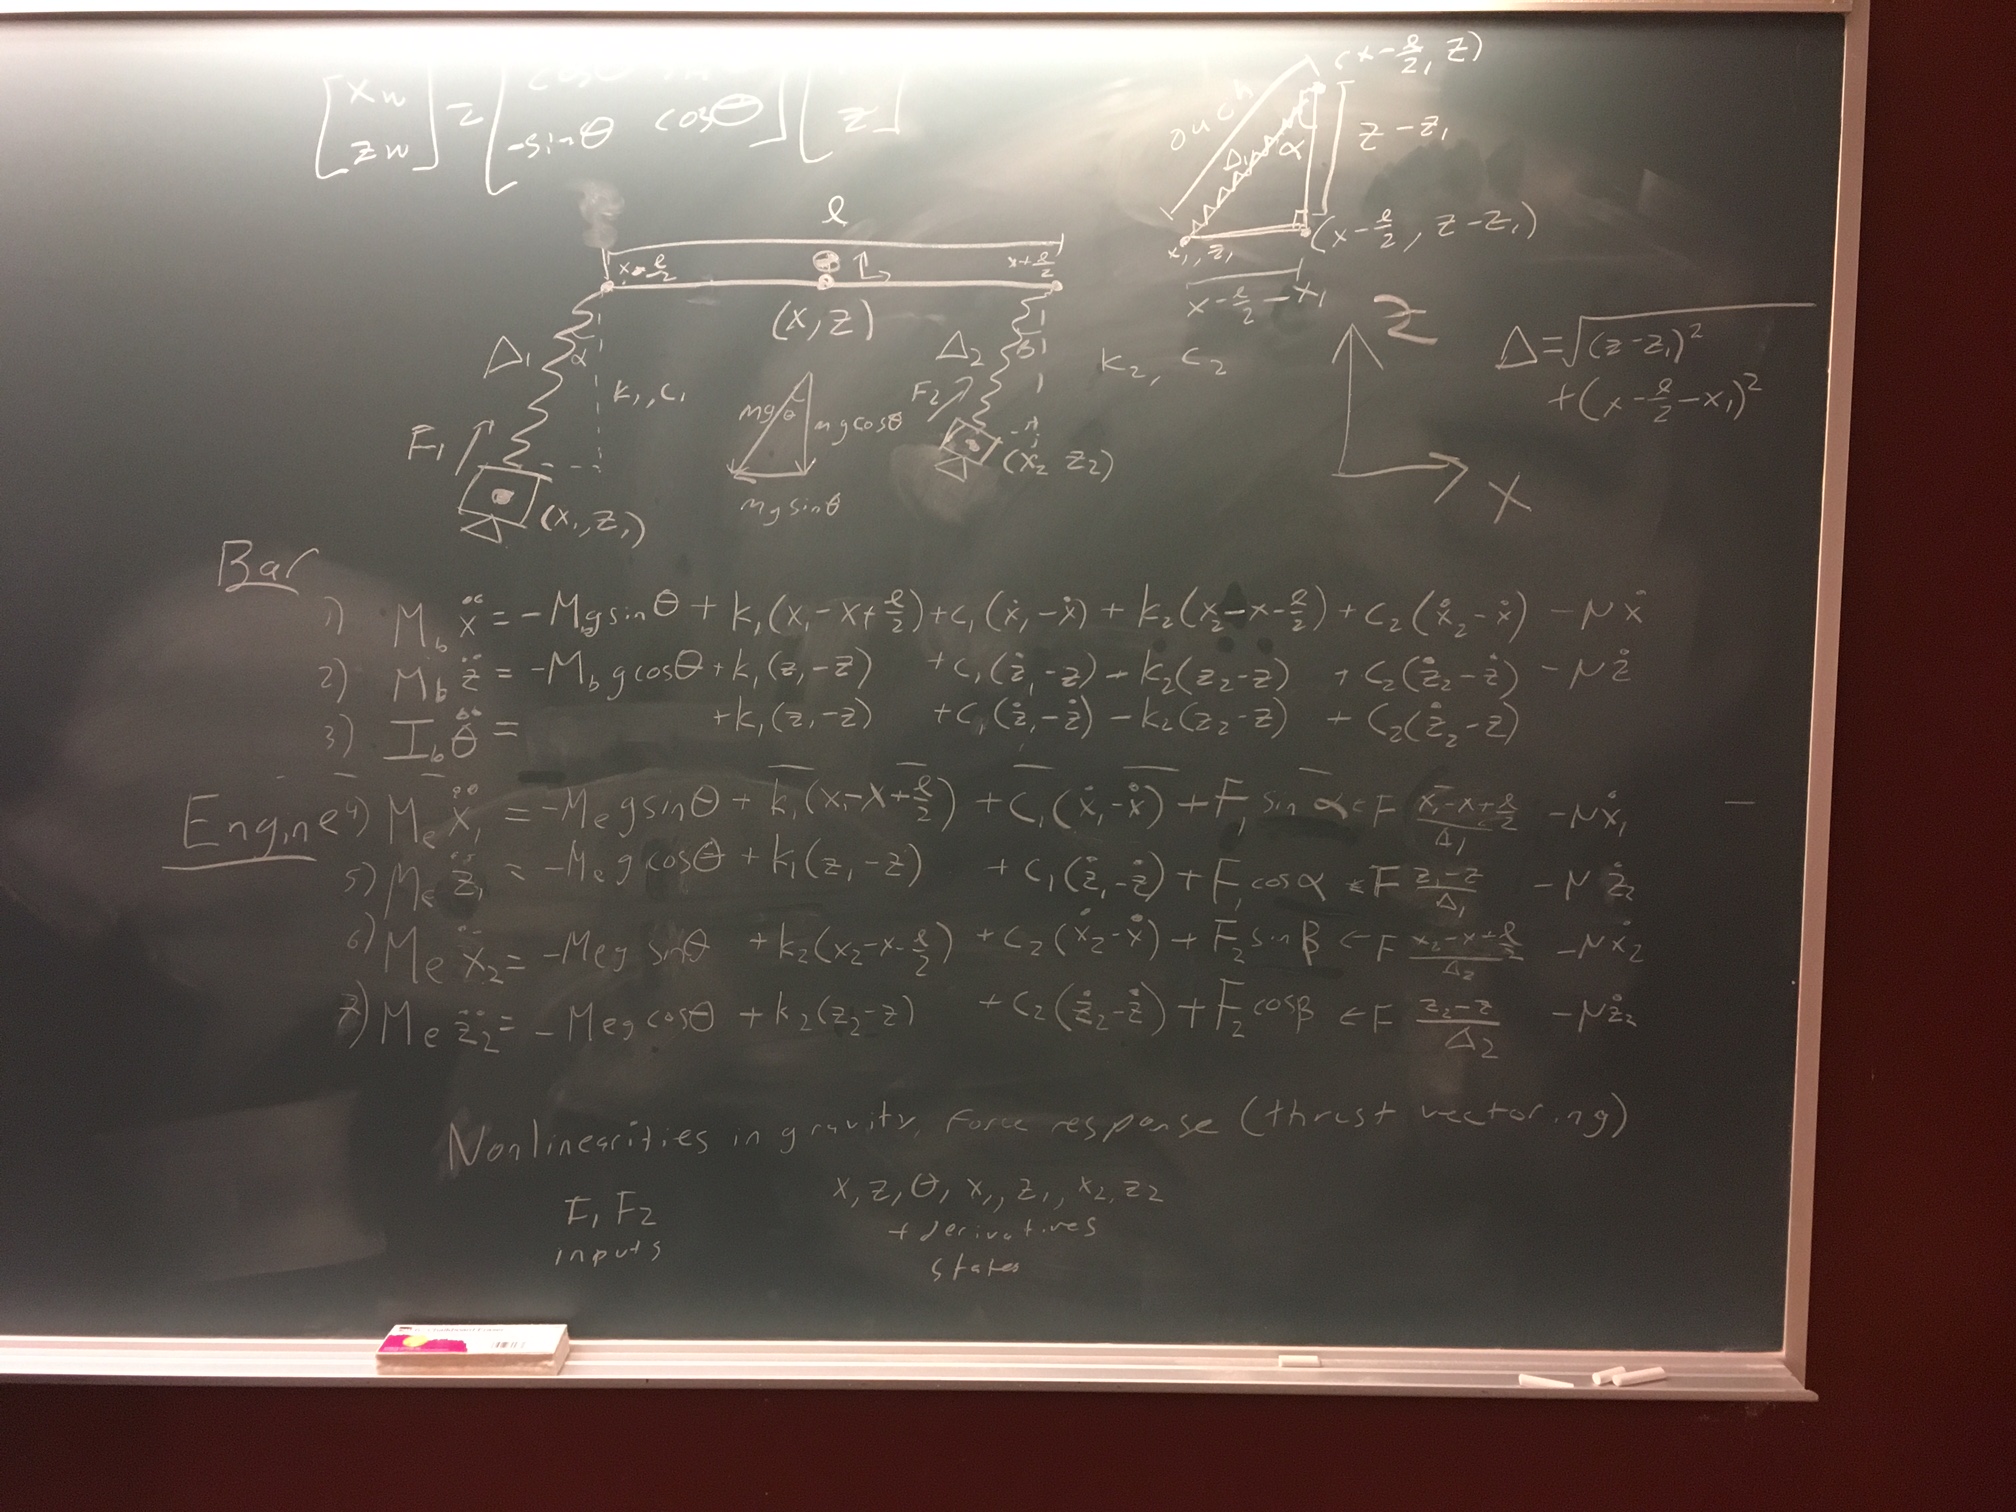 [xw] = [cosθ
[zw] [-sinθ cosθ] [z]
(x-ℓ/2, z)
ouch
Δ₁ α z-z₁
(x-ℓ/2, z-z₁)
x₁, z₁
x-ℓ/2-x₁
ℓ
x-ℓ/2 x+ℓ/2
(x,z)
Δ₁ α k₁,c₁
F₁
(x₁,z₁)
mg θ mgcosθ
mgsinθ
Δ₂ β k₂, c₂
F₂
(x₂ z₂)
z
x
Δ=√(z-z₁)²
+(x-ℓ/2-x₁)²
Bar
1) M_b ẍ = -M_b g sinθ + k₁(x₁-x+ℓ/2) + c₁(ẋ₁-ẋ) + k₂(x₂-x-ℓ/2) + c₂(ẋ₂-ẋ) - μẋ
2) M_b z̈ = -M_b g cosθ + k₁(z₁-z) + c₁(ż₁-z) - k₂(z₂-z) + c₂(ż₂-ż) - μż
3) I_b θ̈ = +k₁(z₁-z) + c₁(ż₁-ż) - k₂(z₂-z) + c₂(ż₂-z)
Engine 4) M_e ẍ₁ = -M_e g sinθ + k₁(x₁-x+ℓ/2) + c₁(ẋ₁-ẋ) + F₁ sin α ← F (x₁-x+ℓ/2)/Δ₁ - μẋ₁
5) M_e z̈₁ = -M_e g cosθ + k₁(z₁-z) + c₁(ż₁-ż) + F₁ cosα ← F (z₁-z)/Δ₁ - μż₂
6) M_e ẍ₂ = -M_e g sinθ + k₂(x₂-x-ℓ/2) + c₂(ẋ₂-ẋ) + F₂ sin β ← F (x₂-x+ℓ/2)/Δ₂ - μẋ₂
7) M_e z̈₂ = -M_e g cosθ + k₂(z₂-z) + c₂(ż₂-ż) + F₂ cosβ ← F (z₂-z)/Δ₂ - μż₂
Nonlinearities in gravity, Force response (thrust vectoring)
F₁ F₂
inputs
x, z, θ, x₁, z₁, x₂, z₂
+ derivatives
states